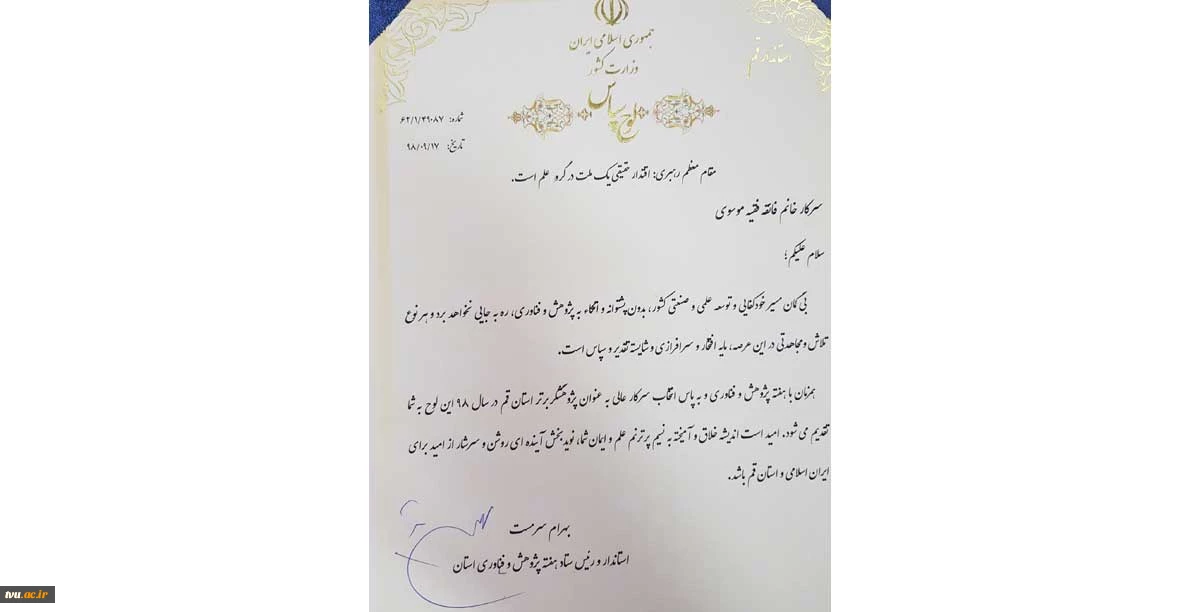 جمهوری اسلامی ایران
وزارت کشور
استاندار قم
لوح سپاس
شماره: ۶۲/۱/۴۹۰۸۷
تاریخ: ۹۸/۰۹/۱۷
مقام معظم رهبری: اقتدار حقیقی یک ملت در گرو علم است.
سرکار خانم فائقه فقیه موسوی
سلام علیکم؛
بی گمان مسیر خودکفایی و توسعه علمی و صنعتی کشور، بدون پشتوانه و اتکاء به پژوهش و فناوری، ره به جایی نخواهد برد و هر نوع
تلاش و مجاهدتی در این عرصه، مایه افتخار و سرافرازی و شایسته تقدیر و سپاس است.
همزمان با هفته پژوهش و فناوری و به پاس انتخاب سرکار عالی به عنوان پژوهشگر برتر استان قم در سال ۹۸ این لوح به شما
تقدیم می شود. امید است اندیشه خلاق و آمیخته به نسیم پر ترنم علم و ایمان شما، نوید بخش آینده ای روشن و سرشار از امید برای
ایران اسلامی و استان قم باشد.
بهرام سرمست
استاندار و رئیس ستاد هفته پژوهش و فناوری استان
tvu.ac.ir